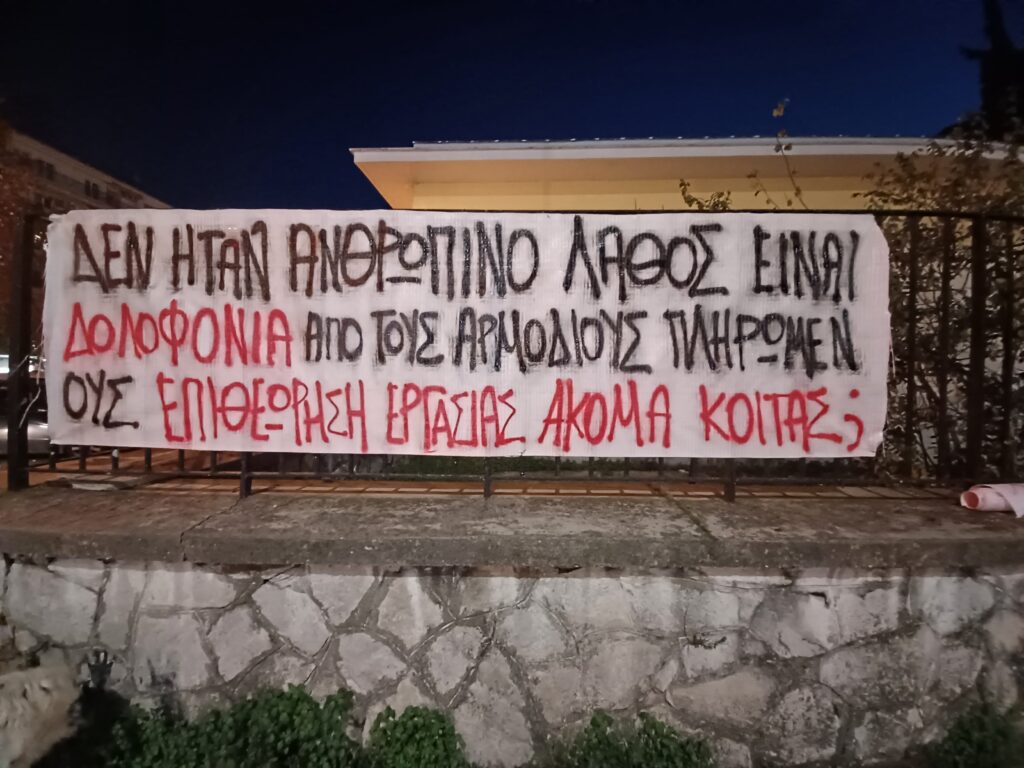 ΔΕΝ ΗΤΑΝ ΑΝΘΡΩΠΙΝΟ ΛΑΘΟΣ ΕΙΝΑΙ
ΔΟΛΟΦΟΝΙΑ ΑΠΟ ΤΟΥΣ ΑΡΜΟΔΙΟΥΣ ΠΛΗΡΩΜΕΝ
ΟΥΣ ΕΠΙΘΕΩΡΗΣΗ ΕΡΓΑΣΙΑΣ ΑΚΟΜΑ ΚΟΙΤΑΣ;